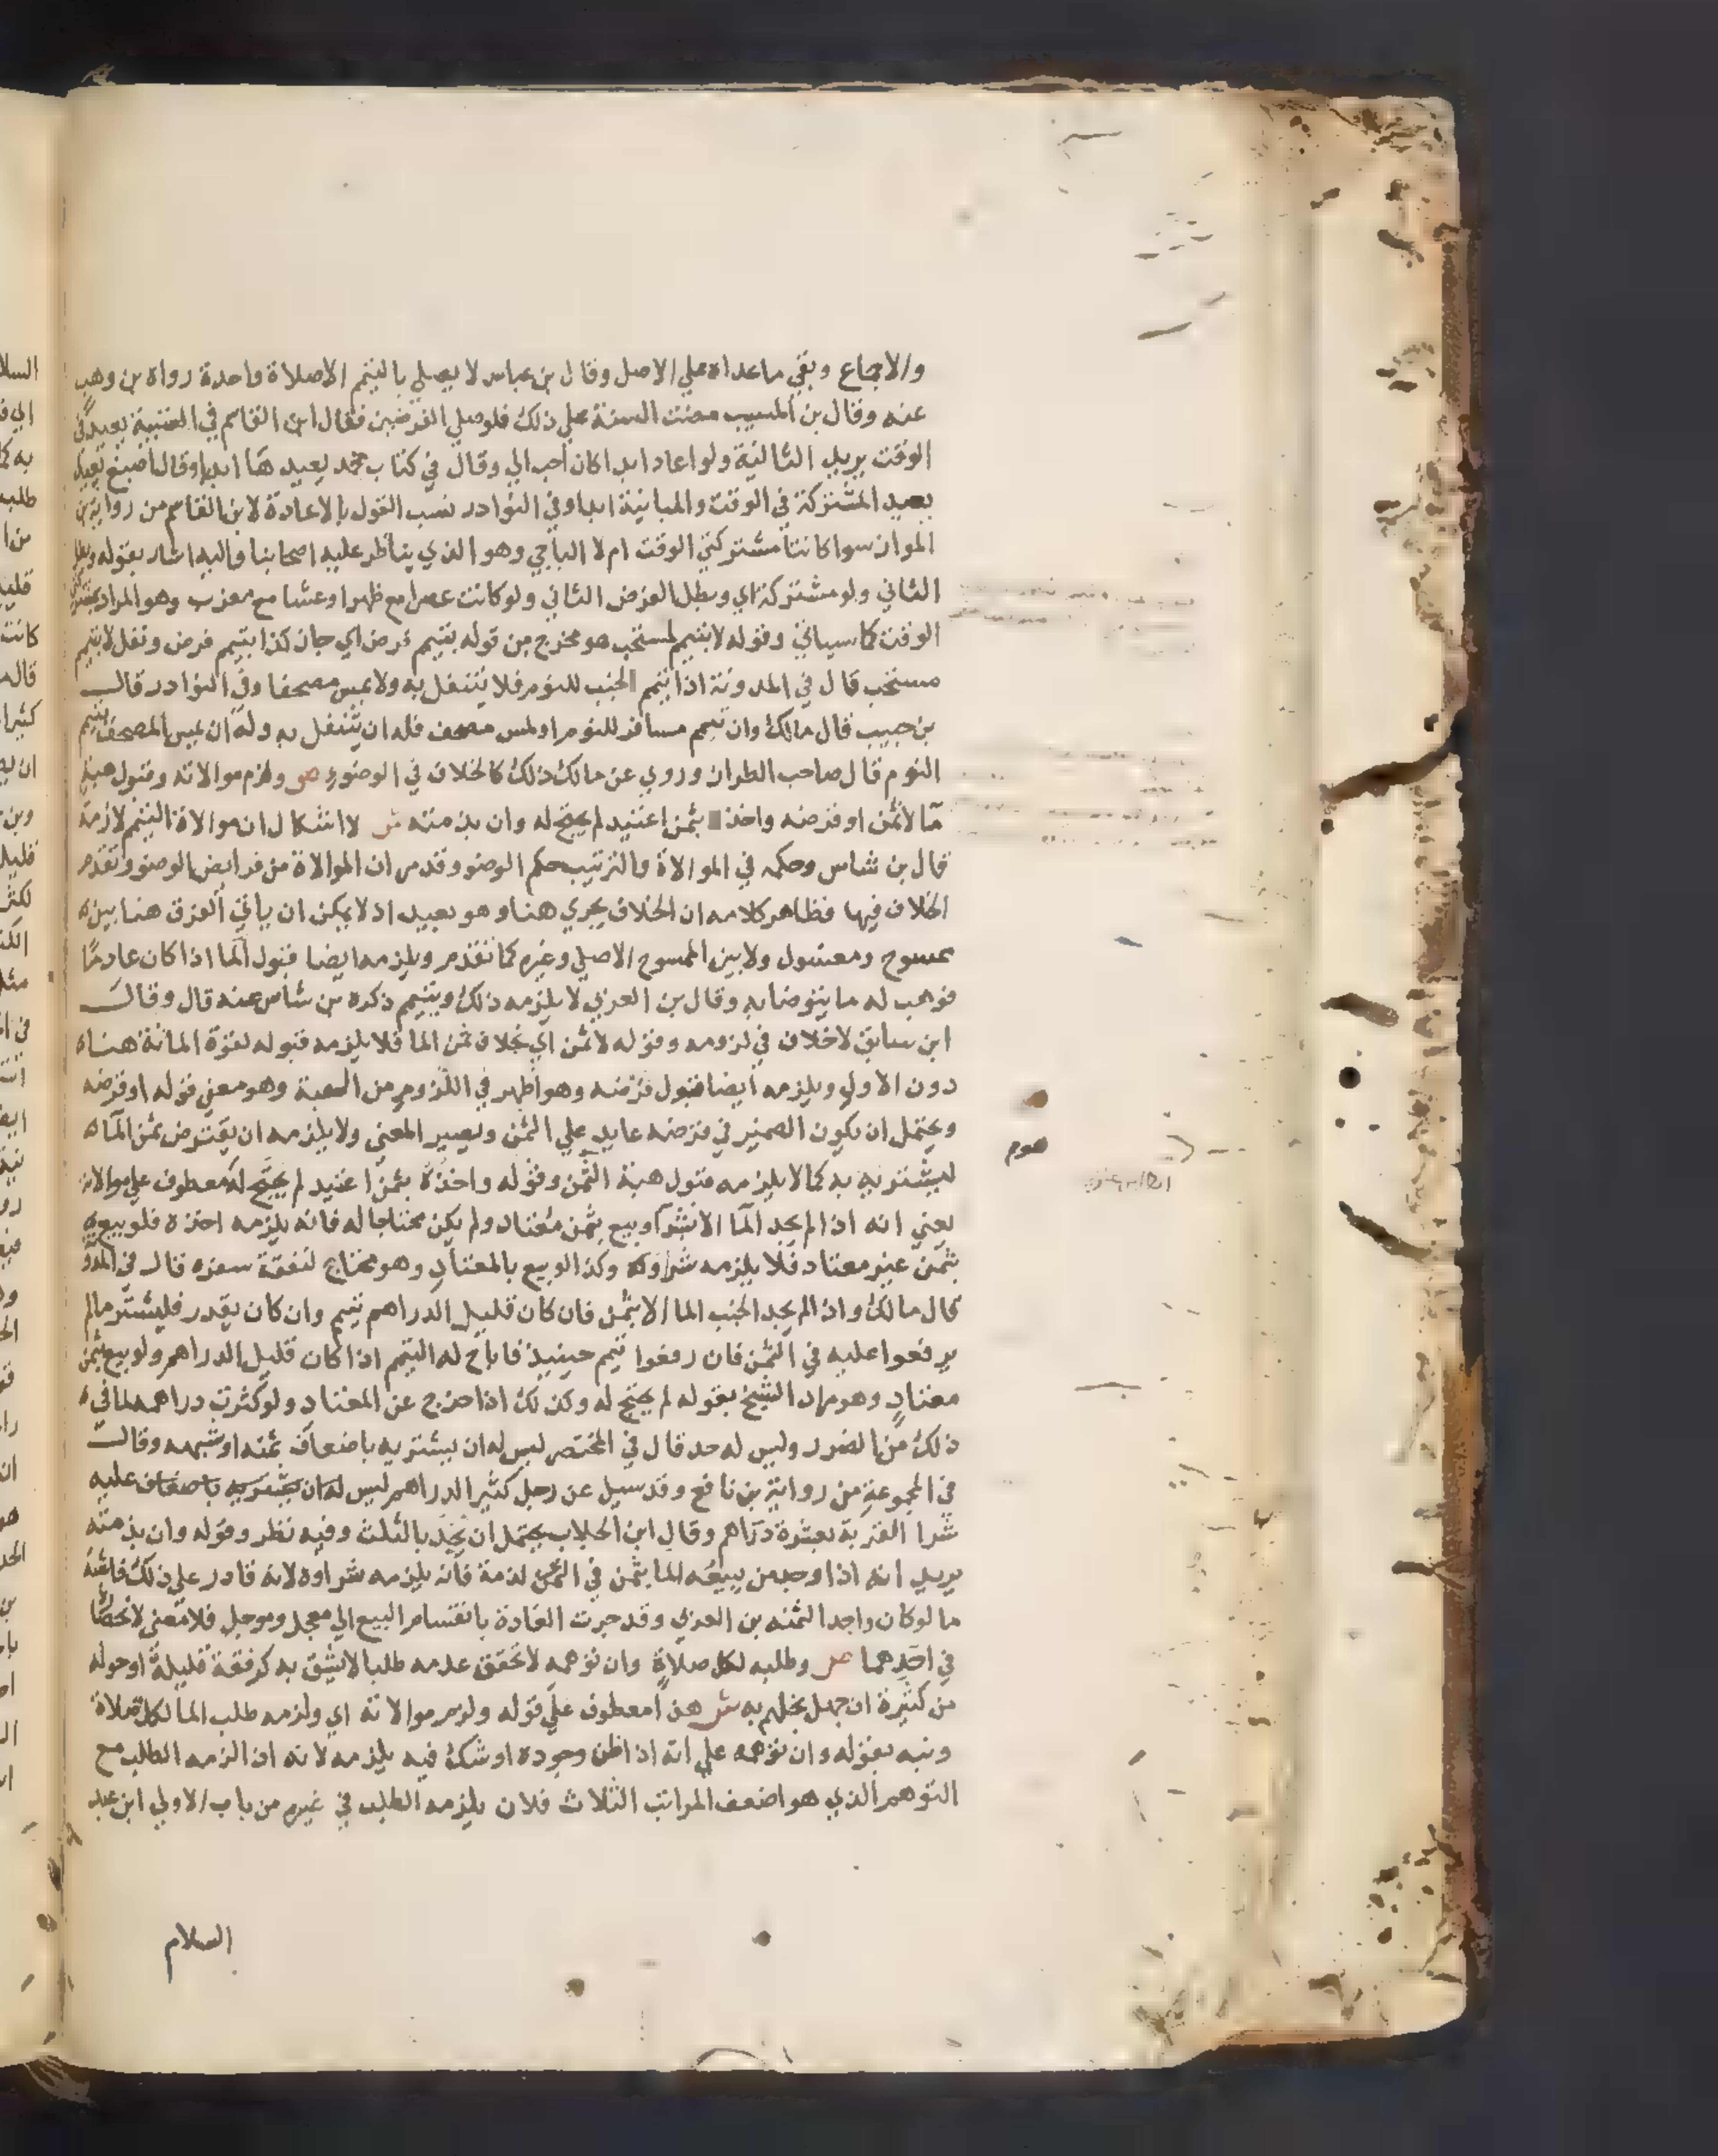 والاجماع وبقي ماعداه علي الاصل وقال بن عباس لا يصلي بالتيمم الاصلاة واحدة رواه بن وهب
عنه وقال بن المسيب مضت السنة علي ذلك فلوصلي الفرضين فقال ابن القاسم في العتبية يعيد في
الوقت يريد الثانية ولو اعاد ابدا كان احب الي وقال في كتاب محمد يعيدها ابدا وقال اصبغ يعيد
يعيد المشتركة في الوقت والمباينة ابدا وفي النوادر نسب القول بالاعادة لابن القاسم من رواية بن
المواز سوا كانتا مشتركتي الوقت ام لا الباجي وهو الذي يناظر عليه اصحابنا واليه اشار بقوله وبطل
الثاني ولو مشتركة اي وبطل الفرض الثاني ولو كانت عصرا مع ظهر او عشا مع مغرب وهو المراد بمشتركتي
الوقت كما سياتي وقوله لا بتيمم لمستحب هو مخرج من قوله بتيمم فرض اي جاز كذا بتيمم فرض ونفل لا بتيمم
مستحب قال في المدونة اذا تيمم الجنب للنوم فلا يتنفل به ولا يمس مصحفا وفي النوادر قال
بن حبيب قال مالك وان تيمم مسافر للنوم او لمس مصحف فله ان يتنفل به وله ان يمس المصحف بتيمم
النوم قال صاحب الطراز وروي عن مالك ذلك كالخلاف في الوضوء ص ولزم موالاته وقبول هبة
مآ لا ثمن او قرضه واخذه بثمن اعتيد لم يحتج له وان بذمته ش لا اشكال ان موالاة التيمم لازمة
قال بن شاس وحكمه في الموالاة والترتيب حكم الوضو وقدم ان الموالاة من فرايض الوضو وتقدم
الخلاف فيها فظاهر كلامه ان الخلاف يجري هنا وهو بعيد اذ لا يمكن ان ياتي الفرق هنا بين
ممسوح ومغسول ولا بين الممسوح الاصلي وغيره كما تقدم ويلزمه ايضا قبول المآ اذا كان عادمًا
فوهب له ما يتوضا به وقال بن العربي لا يلزمه ذلك ويتيمم ذكره بن شاس عنه قال وقال
ابن سابق لا خلاف في لزومه وقوله لا ثمن اي بخلاف ثمن الما فلا يلزمه قبوله لقوة المانة هناه
دون الاولي ويلزمه ايضا قبول قرضه وهو اظهر في اللزوم من الهبة وهو معني قوله او قرضه
ويحتمل ان يكون الضمير في قرضه عايد علي الثمن ويصير المعني ولا يلزمه ان يقترض ثمن المآ
ليشتريه به كما لا يلزمه قبول هبة الثمن وقوله واخذه بثمن اعتيد لم يحتج له معطوف علي موالاته
يعني انه اذا لم يجد المآ الا بشرآ وبيع بثمن معتاد ولم يكن محتاجا له فانه يلزمه اخذه فلو بيع
بثمن غير معتاد فلا يلزمه شراوه وكذا لو بيع بالمعتاد وهو محتاج لنفقة سفره قال في المدو
قال مالك واذا لم يجد الجنب الما الا بثمن فان كان قليل الدراهم تيمم وان كان يقدر فليشتر مالم
يرفعوا عليه في الثمن فان رفعوا تيمم حينيذ فاباح له التيمم اذا كان قليل الدراهم ولو بيع بثمن
معتاد وهو مراد الشيخ بقوله لم يحتج له وكذلك اذا خرج عن المعتاد ولو كثرت دراهمه لما في
ذلك من الضرر وليس له حد قال في المختصر ليس له ان يشتريه باضعاف ثمنه او شبهه وقال
في المجموعة من رواية بن نافع وقد سيل عن رجل كثير الدراهم ليس له ان يشتريه باضعاف عليه
شرا القربة بعشرة دراهم وقال ابن الجلاب يحتمل ان يحد بالثلث وفيه نظر وقوله وان بذمته
يريد انه اذا وجد من يبيعه الما بثمن في الثمن لذمة فانه يلزمه شراوه لانه قادر علي ذلك فاشبه
ما لو كان واجدا لثمنه بن العربي وقد جرت العادة بانقسام البيع الي معجل وموجل فلا معني لانحصا
في احدهما ص وطلبه لكل صلاة وان توهمه لا تحقق عدمه طلبا لا يشق به كرفقة قليلة او حوله
من كثيرة ان جهل بخلهم به ش هذا معطوف علي قوله ولزم موالاته اي ولزمه طلب الما لكل صلاة
ونبه بقوله وان توهمه علي انه اذا ظن وجوده او شك فيه يلزمه لانه اذا لزمه الطلب مع
التوهم الذي هو اضعف المراتب الثلاث فلان يلزمه الطلب في غيره من باب الاولي ابن عبد
السلام